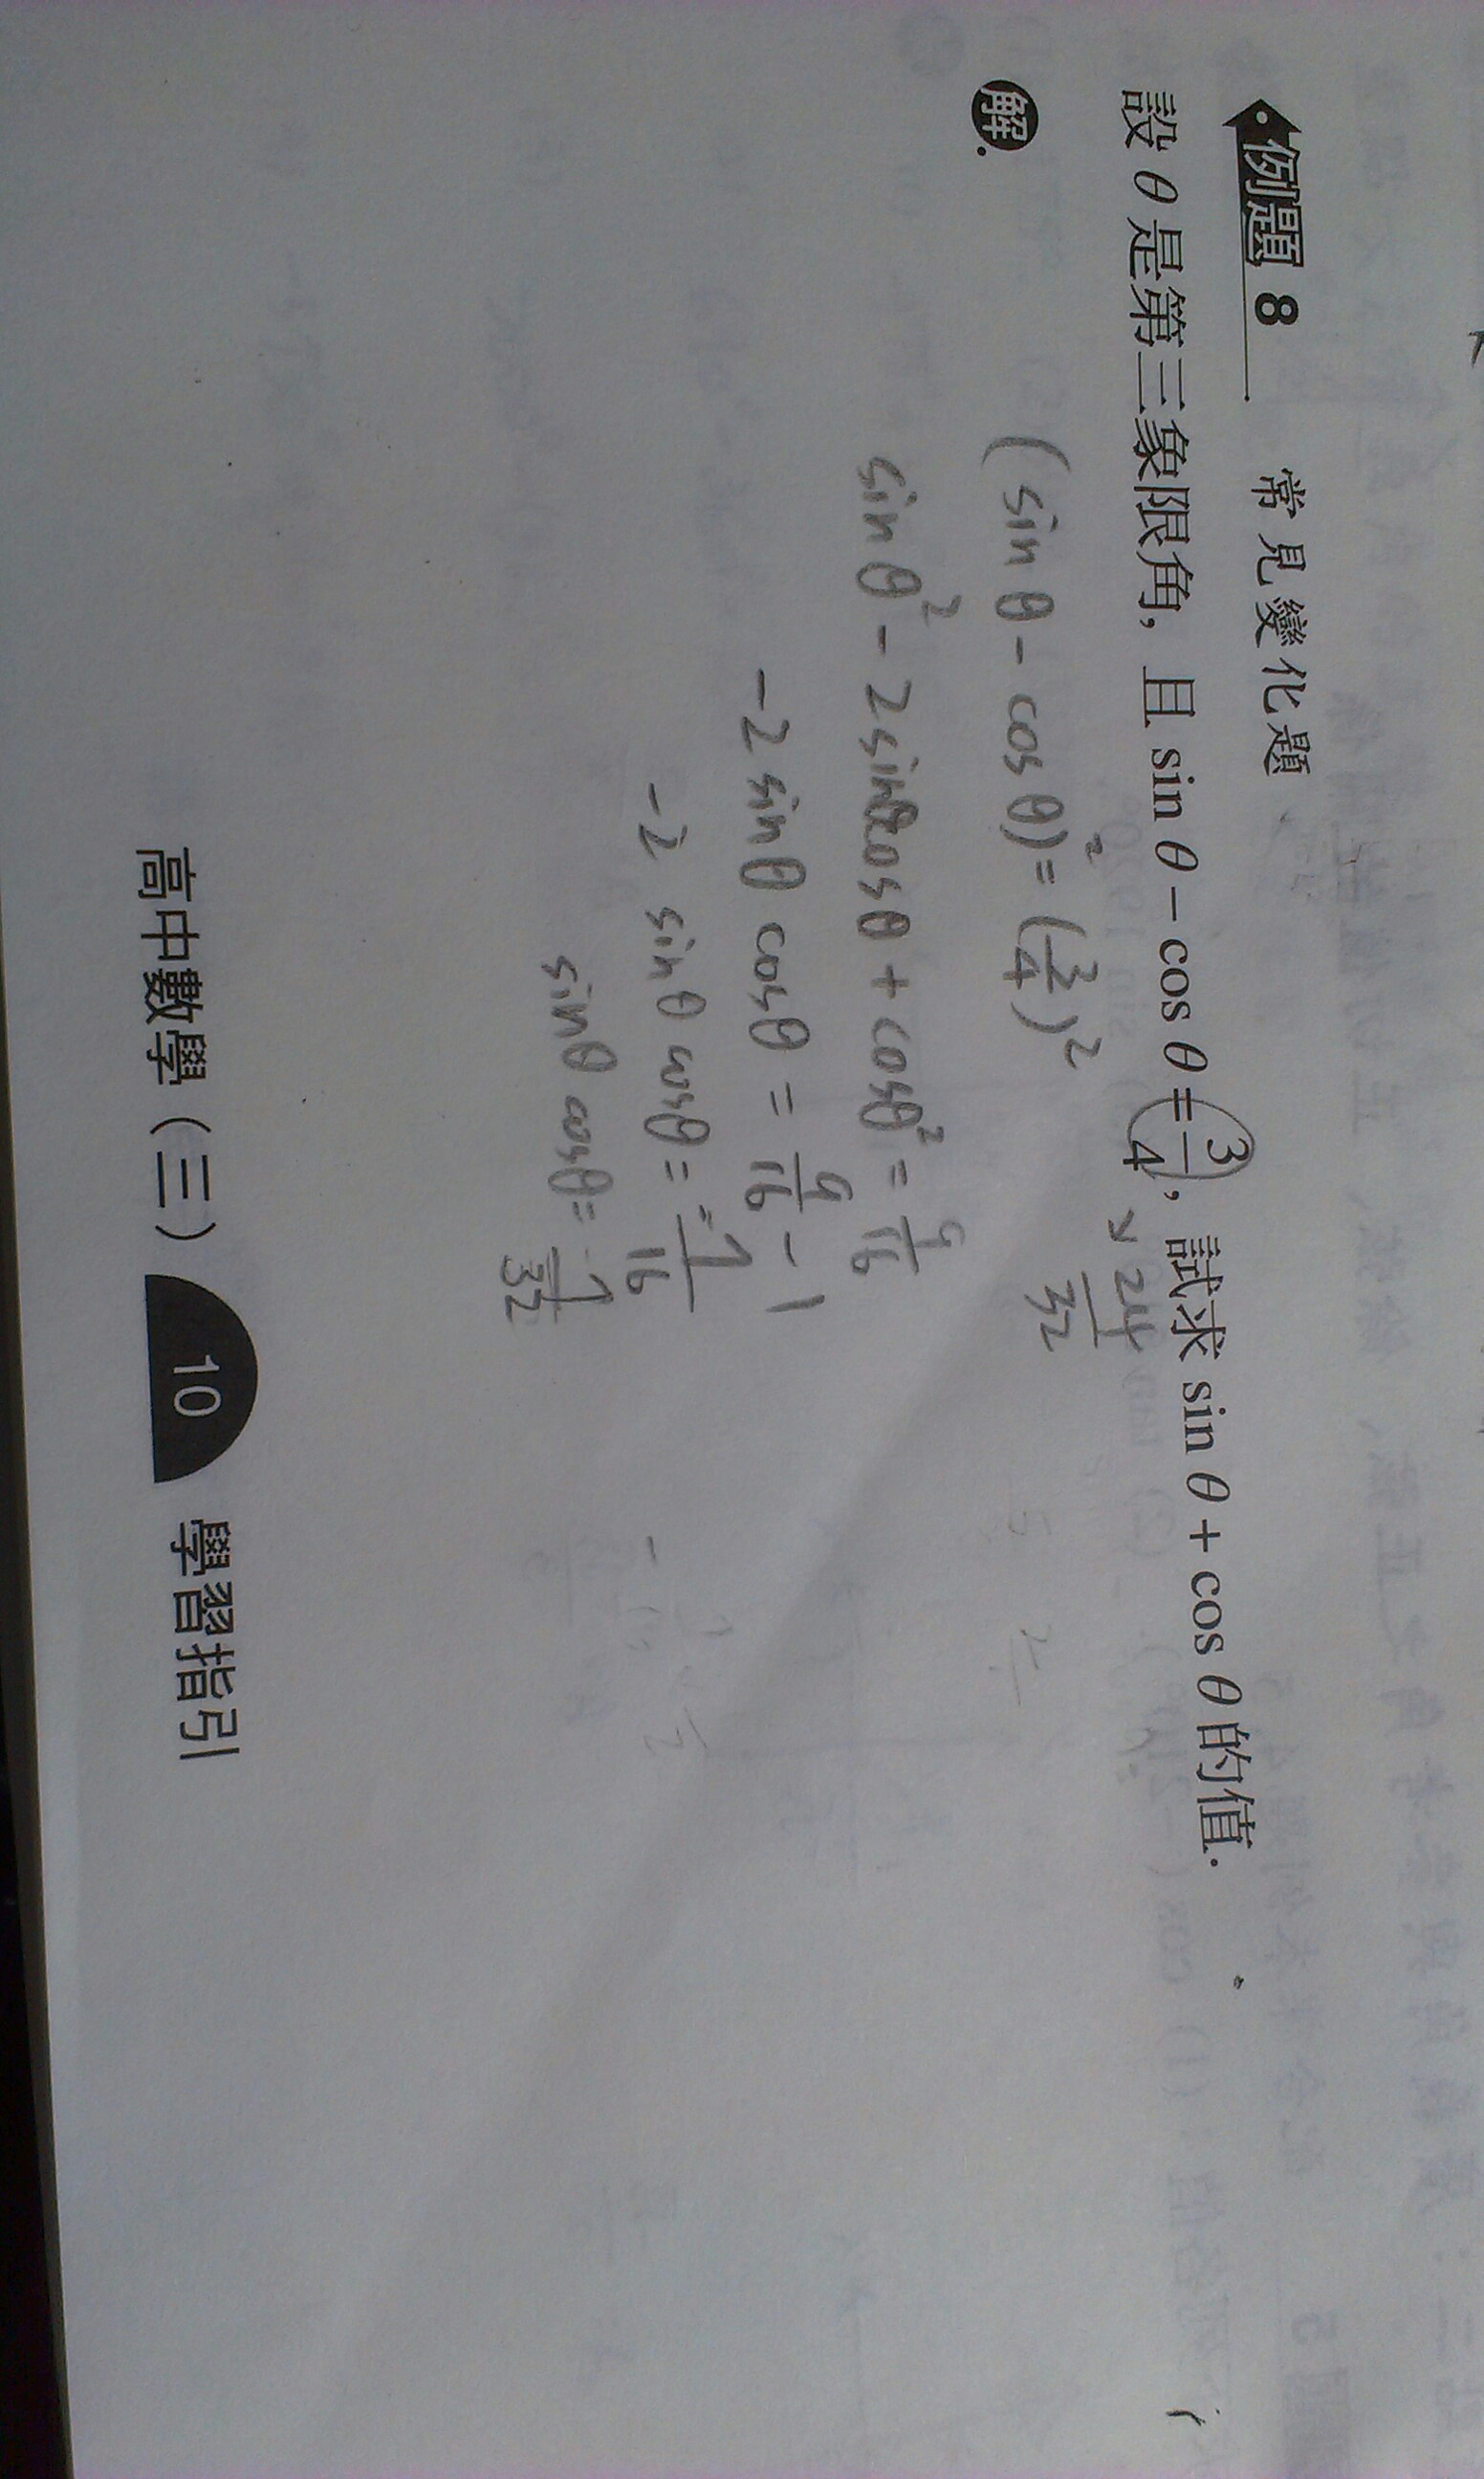 例題 8 常見變化題
設 θ 是第三象限角，且 sin θ − cos θ = 3/4，試求 sin θ + cos θ 的值.
24/32
解.
(sin θ − cos θ)² = (3/4)²
sin θ² − 2 sinθcosθ + cosθ² = 9/16
−2 sinθ cosθ = 9/16 − 1
−2 sinθ cosθ = −7/16
sinθ cosθ = 7/32
高中數學（三） 10 學習指引